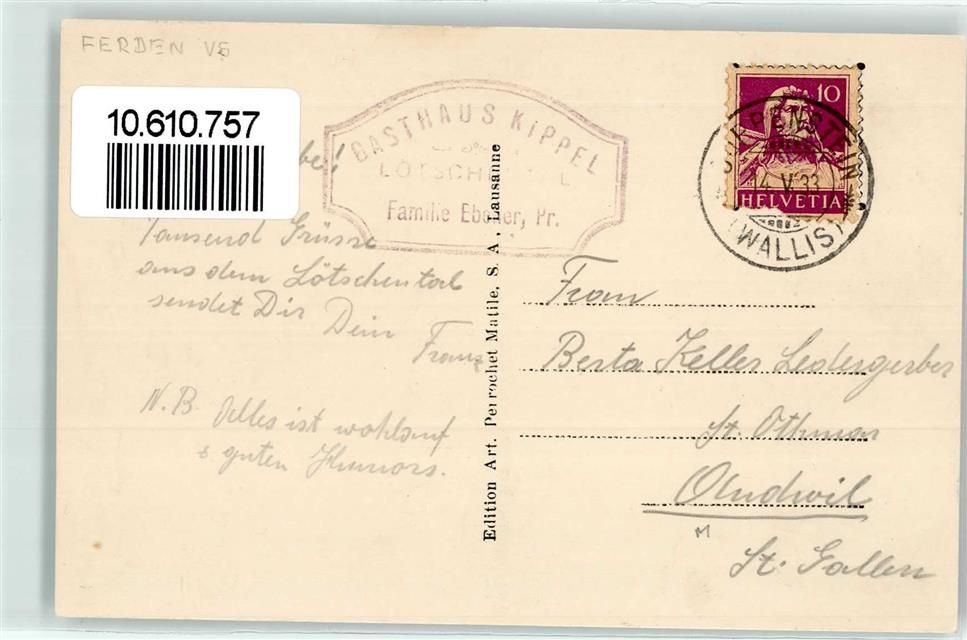 FERDEN VS
10.610.757
GASTHAUS KIPPEL
LÖTSCHENTAL
Familie Ebener, Pr.
Tausend Grüsse
aus dem Lötschental
sendet Dir Dein
Franz
N.B. Alles ist wohlauf
& guten Humors.
Edition Art. Perrochet Matile, S. A., Lausanne
10
HELVETIA
14. V. 33
(WALLIS)
Frau
Berta Keller Ledergerber
St. Othmar
Andwil
M
St. Gallen